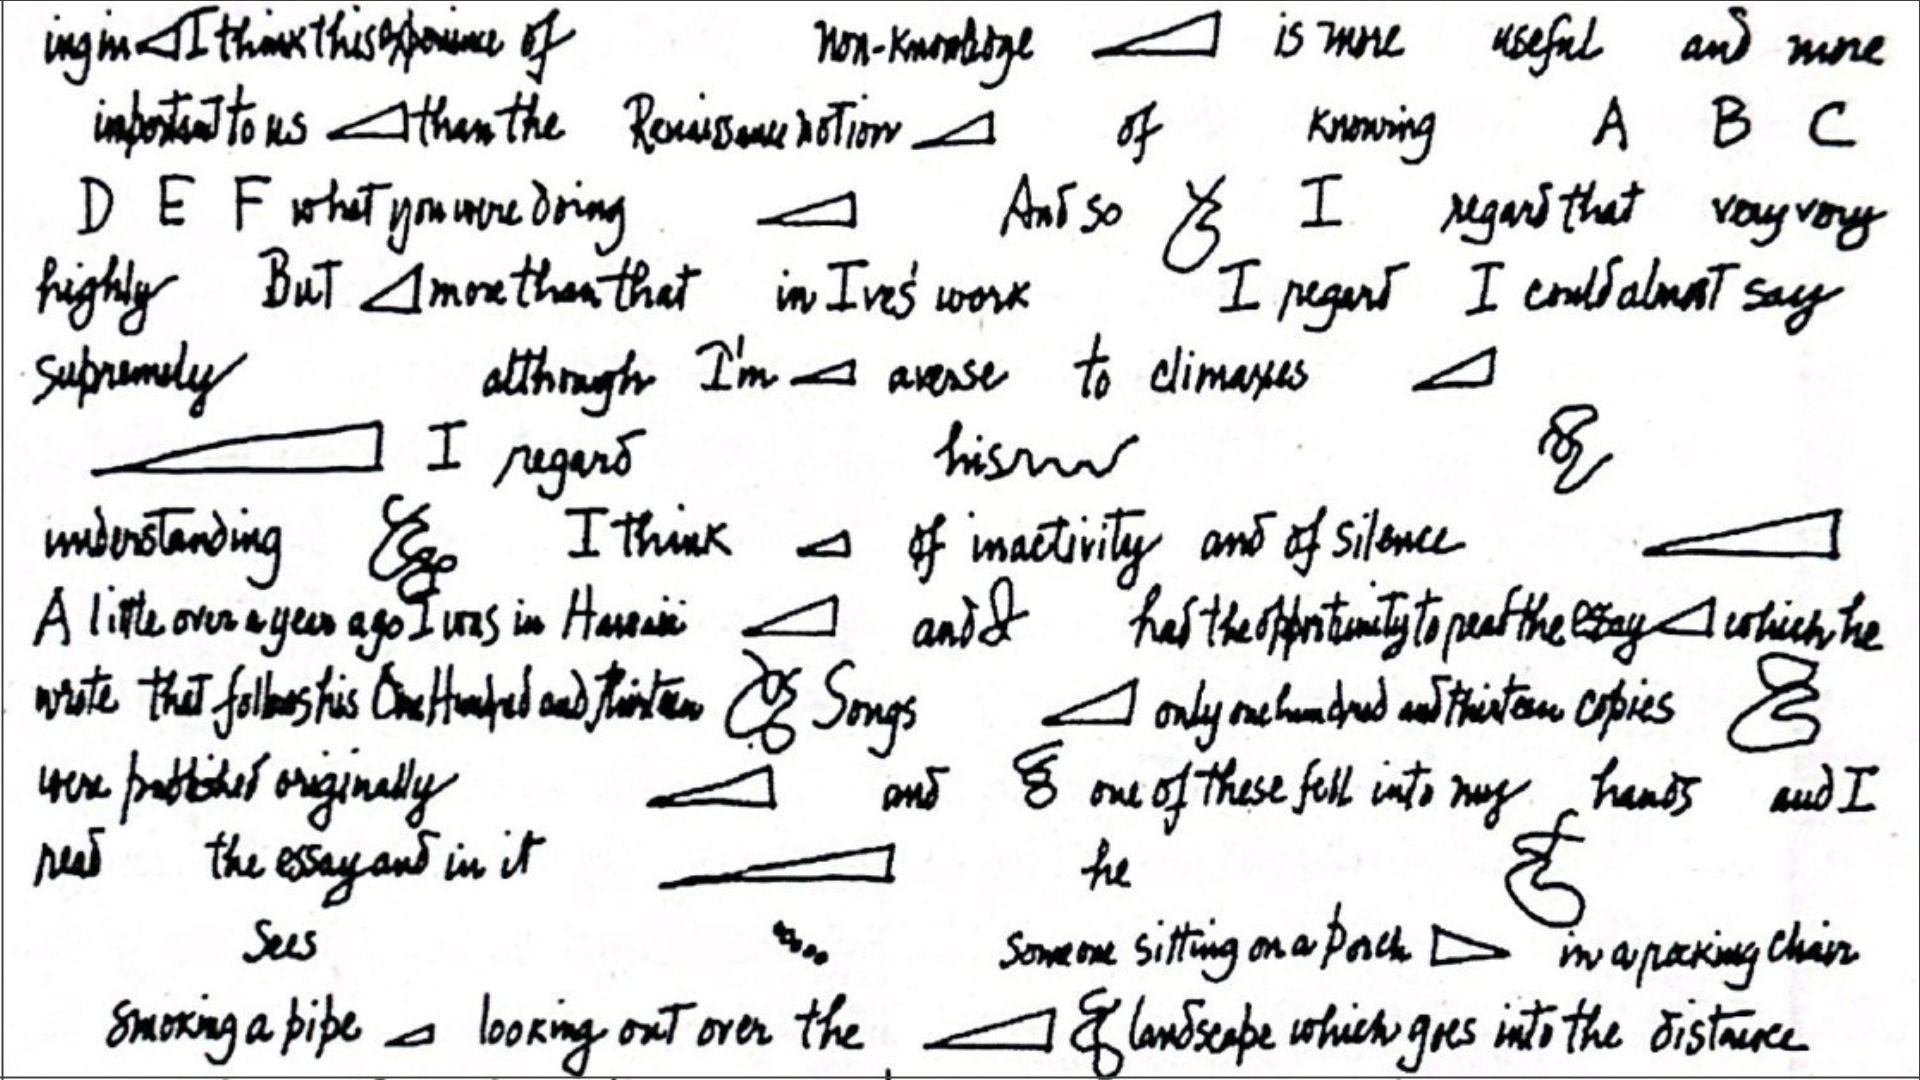 ing in I think this experience of non-knowledge is more useful and more
important to us than the Renaissance notion of knowing A B C
D E F what you were doing And so I regard that very very
highly But more than that in Ives' work I regard I could almost say
supremely although I'm averse to climaxes
I regard his
understanding I think of inactivity and of silence
A little over a year ago I was in Hawaii and I had the opportunity to read the essay which he
wrote that follows his One Hundred and Thirteen Songs only one hundred and thirteen copies
were published originally and one of these fell into my hands and I
read the essay and in it he
sees someone sitting on a porch in a rocking chair
smoking a pipe looking out over the landscape which goes into the distance